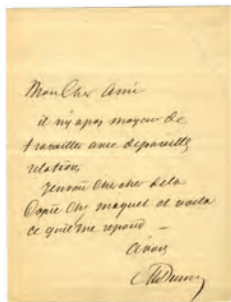 Mon Cher Ami
il n'y a pas moyen de
travailler avec de pareilles
relations,
J'envoie chercher de la
Copie chez Maquet et voila
ce qu'il me repond —
A vous